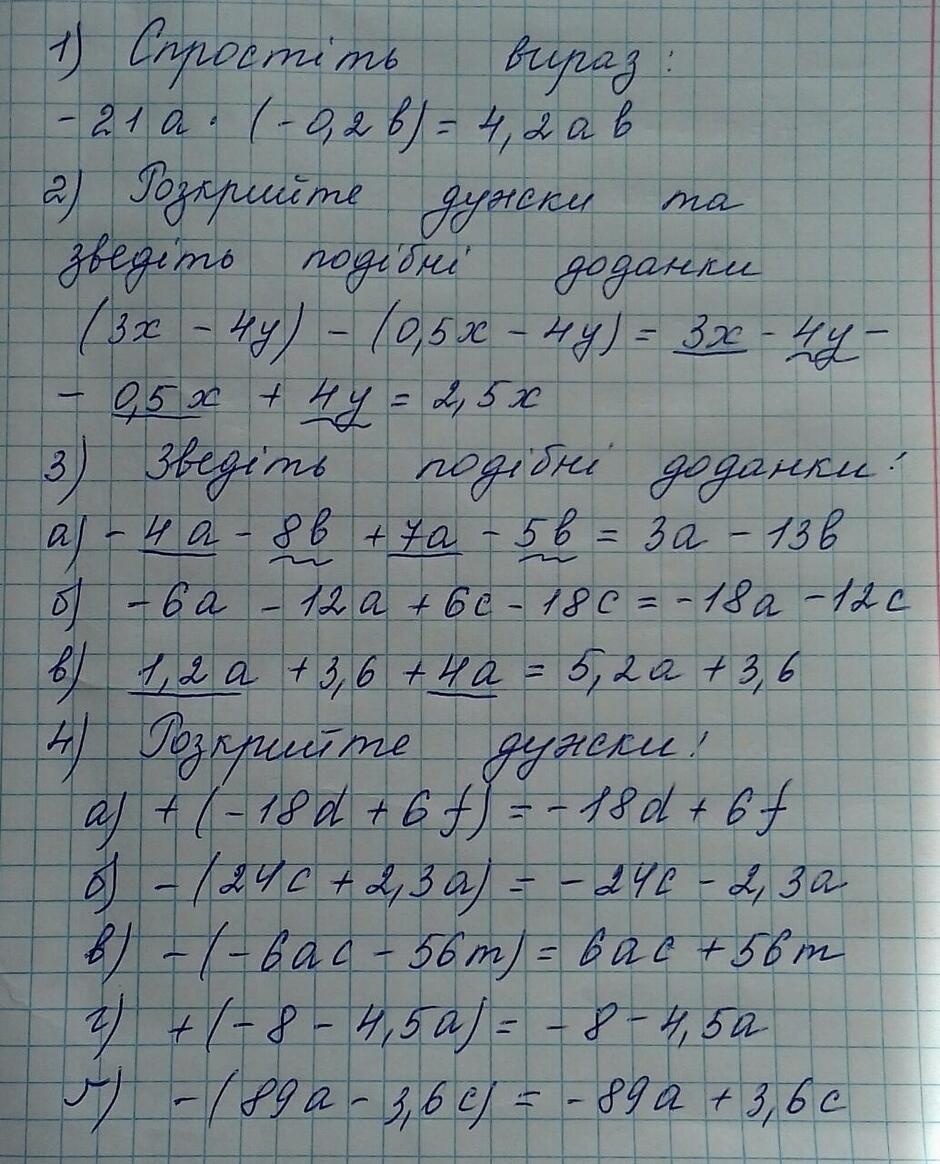 1) Спростіть вираз:
-21a · (-0,2в) = 4,2ав
2) Розкрийте дужки та
зведіть подібні доданки
(3x - 4y) - (0,5x - 4y) = 3x - 4y -
- 0,5x + 4y = 2,5x
3) Зведіть подібні доданки:
а) - 4a - 8в + 7a - 5в = 3a - 13в
б) -6a - 12a + 6c - 18c = -18a - 12c
в) 1,2a + 3,6 + 4a = 5,2a + 3,6
4) Розкрийте дужки:
а) + (-18d + 6f) = -18d + 6f
б) - (24c + 2,3a) = - 24c - 2,3a
в) - (-6ac - 56m) = 6ac + 56m
г) + (-8 - 4,5a) = - 8 - 4,5a
ґ) - (89a - 3,6c) = - 89a + 3,6c